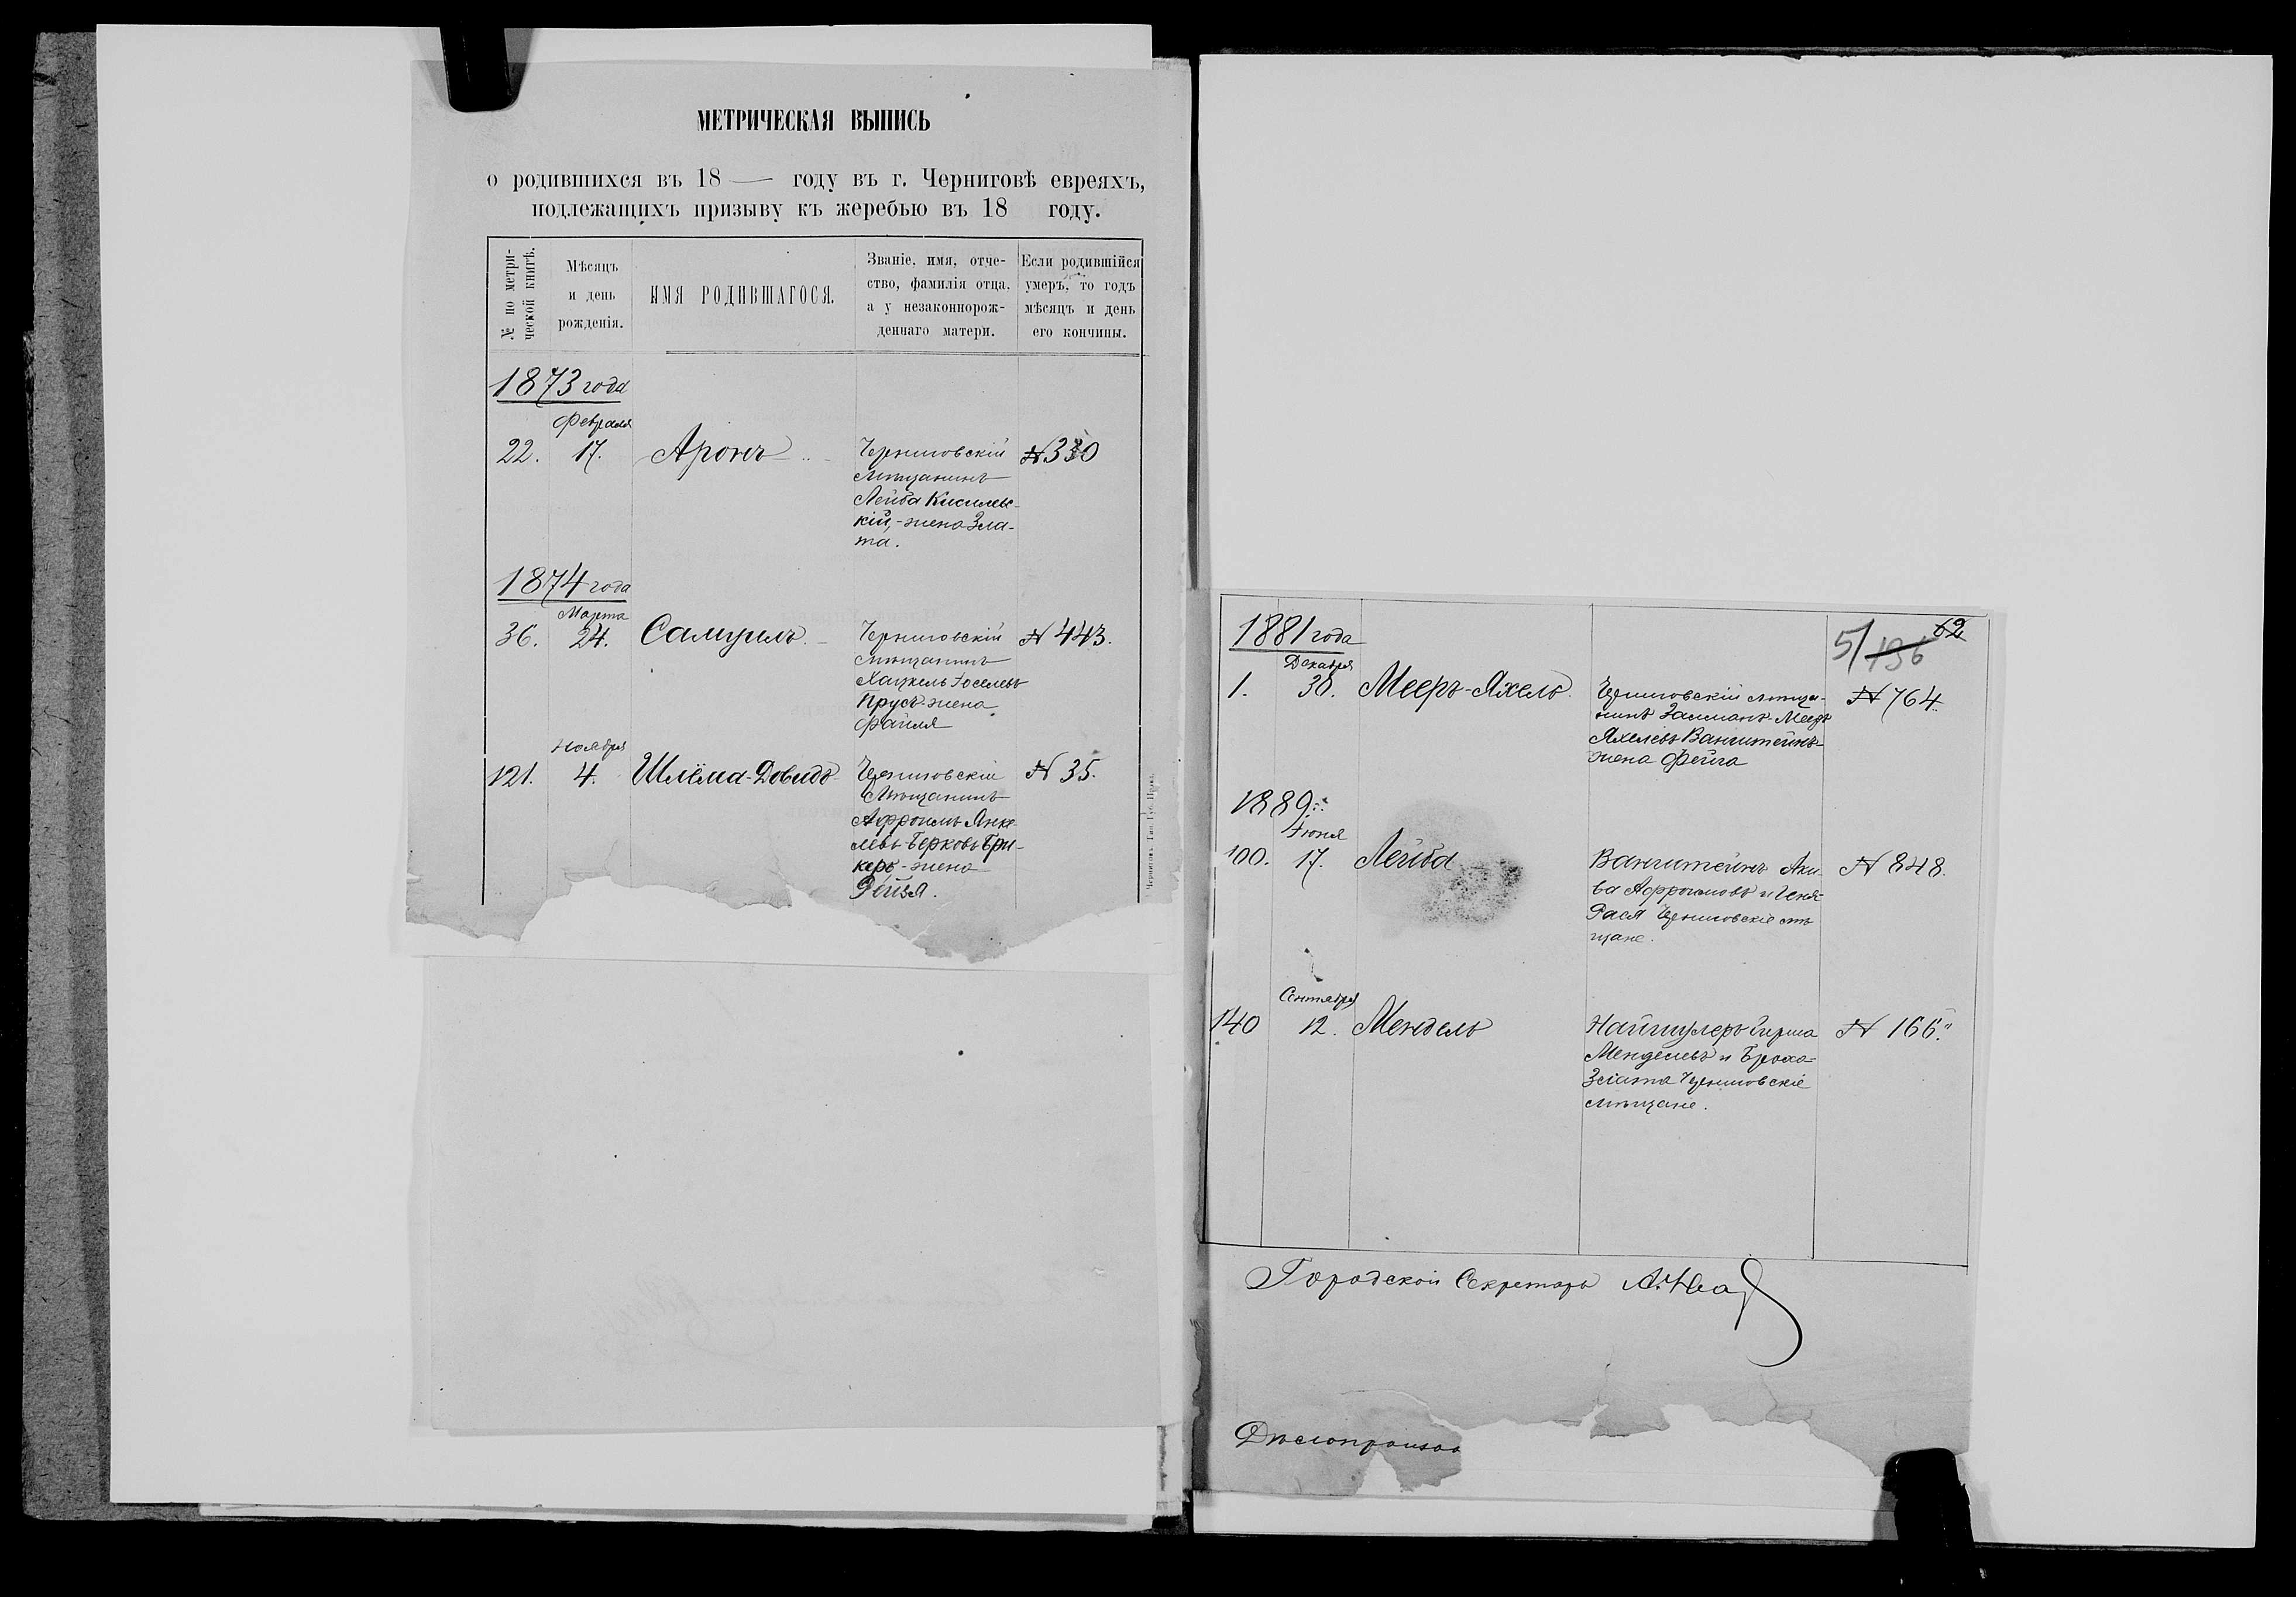 МЕТРИЧЕСКАЯ ВЫПИСЬ
о родившихся въ 18 — году въ г. Черниговѣ евреяхъ,
подлежащихъ призыву къ жеребью въ 18 году.
№ по метри-
ческой книгѣ.
Мѣсяцъ
и день
рожденія.
ИМЯ РОДИВШАГОСЯ.
Званіе, имя, отче-
ство, фамилія отца,
а у незаконнорож-
деннаго матери.
Если родившійся
умеръ, то годъ
мѣсяцъ и день
его кончины.
1873 года
Февраля
22. 17. Аронъ Черниговскій № 330
мѣщанинъ
Лейба Кисилев-
кій, - жена Зла-
та.
1874 года
Марта
36. 24. Самуилъ Черниговскій № 443.
мѣщанинъ
Хацкель Іоселевъ
Прусъ - жена
Файля
Ноября
121. 4. Шлёма-Довидъ Черниговскій № 35.
мѣщанинъ
Афроимъ Янке-
левъ-Берковъ Бри-
керъ, - жена
Рейзя.
Черниговъ. Тип. Губ. Правл.
62
51 196
1881 года
Декабря
1. 30. Мееръ-Яхель Черниговскій мѣща- № 764.
нинъ Залманъ-Мееръ
Яхелевъ Ванштейнъ-
жена Фейга
1889
Іюня
100. 17. Лейба Ванштейнъ Аки- № 848.
ва Афроимовъ и Геня-
Рася Черниговскіе мѣ-
щане.
Сентября
140 12. Мендель Наймулеръ Гирша № 166.
Менделевъ и Броха-
Злата Черниговскіе
мѣщане.
Городской Секретарь
Дѣлопроизво